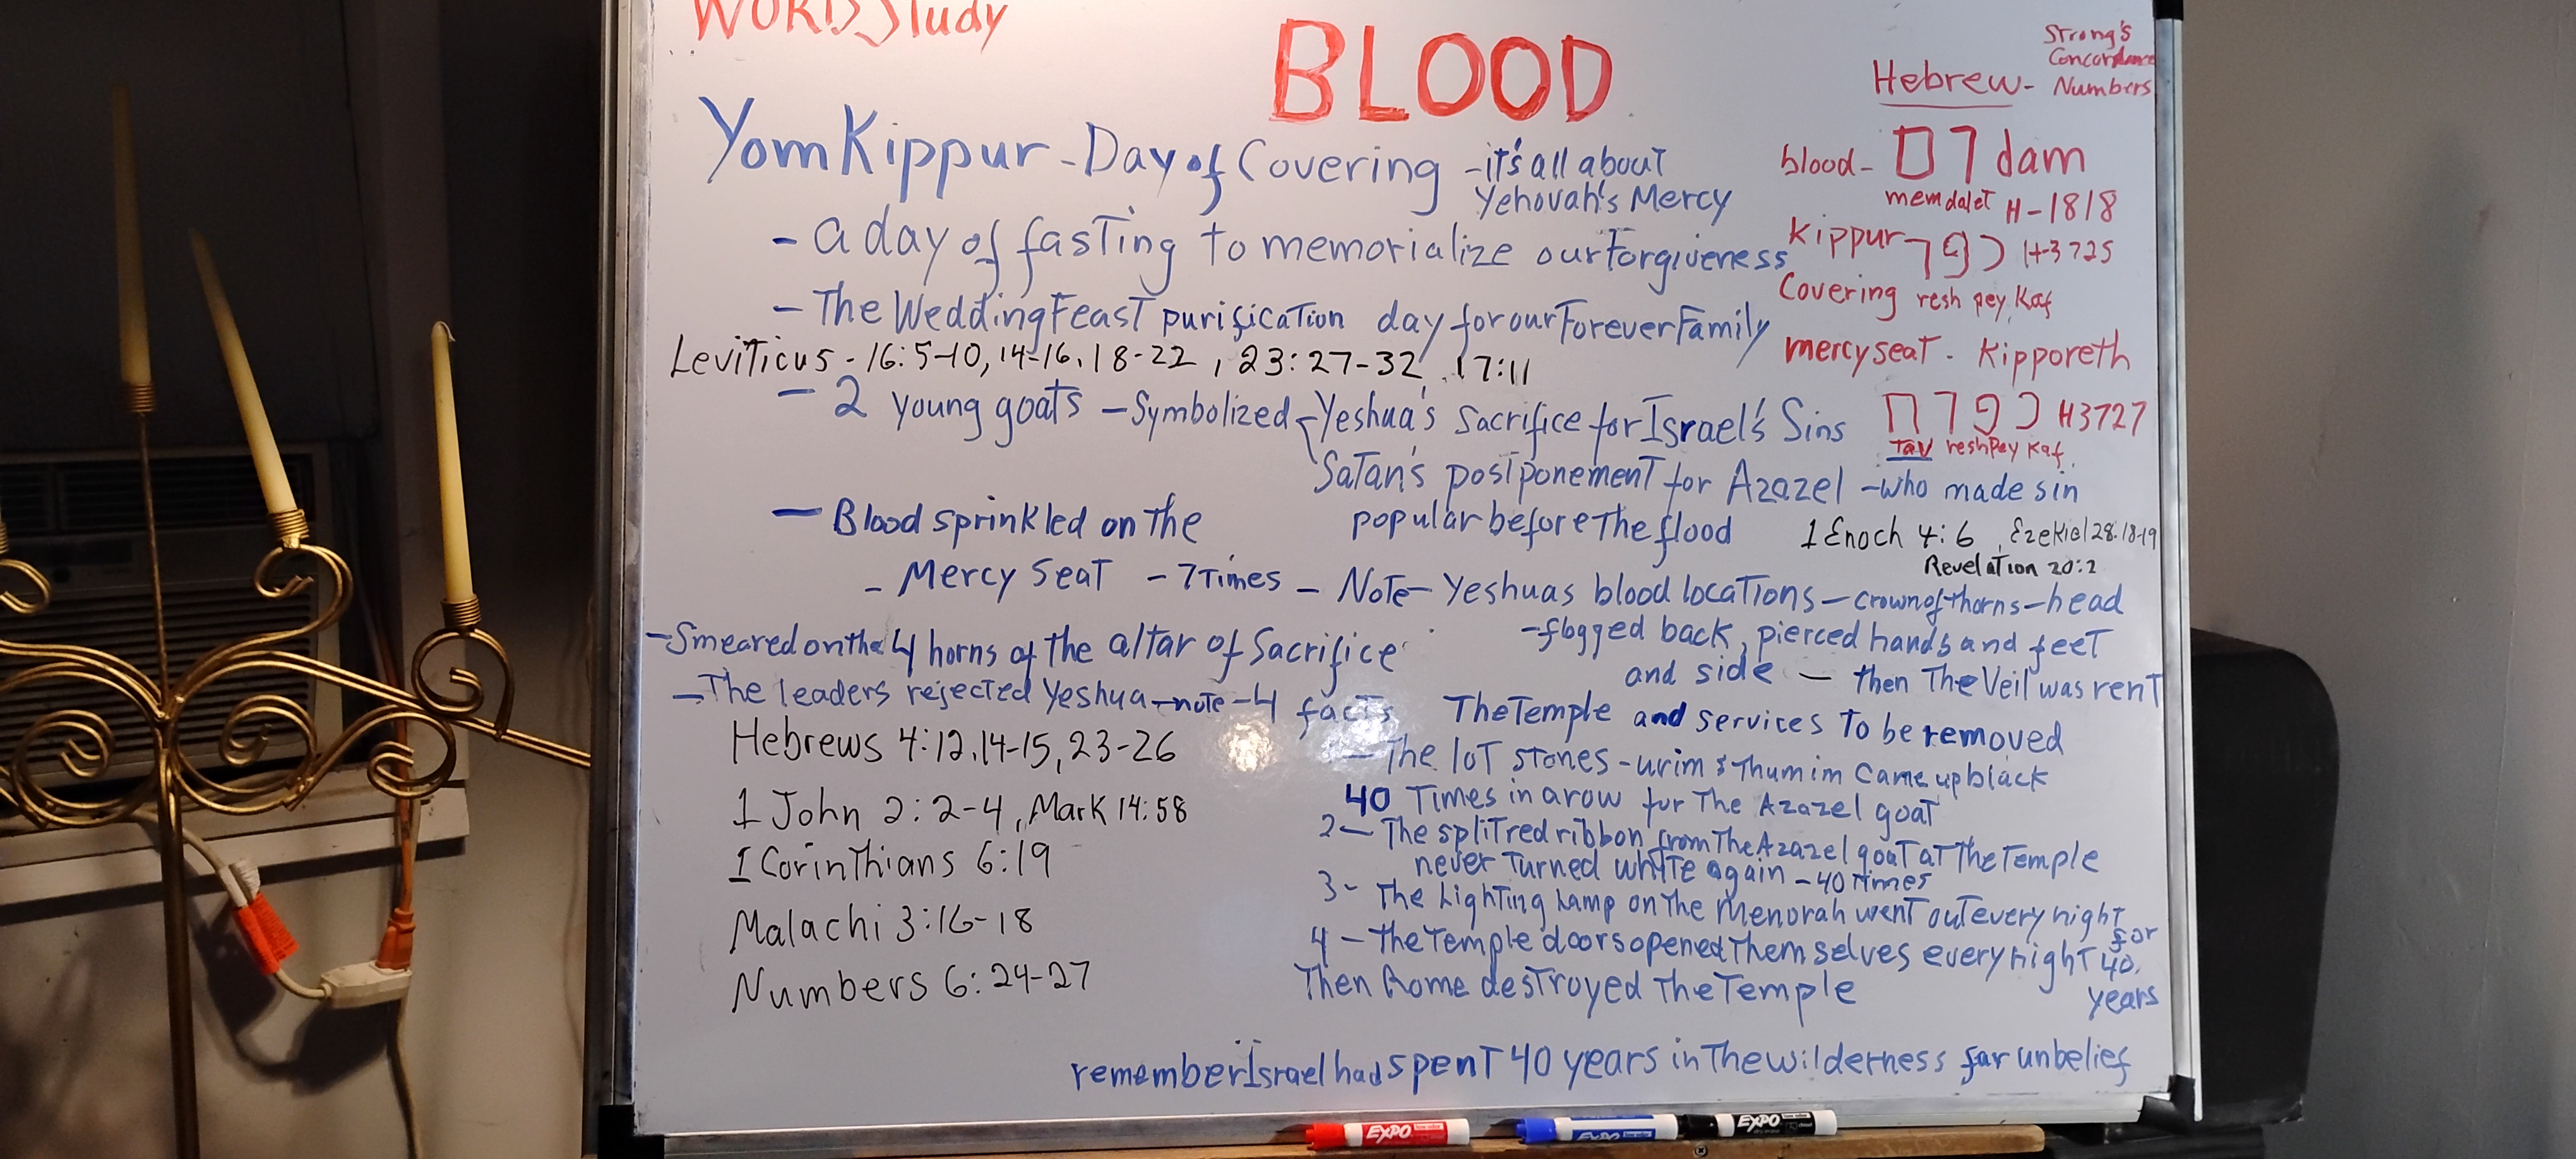 WORD Study
BLOOD
Strong's
Concordance
Hebrew- Numbers
Yom Kippur - Day of Covering - it's all about
Yehovah's Mercy
blood- דם dam
mem dalet H-1818
- a day of fasting to memorialize our Forgiveness
Kippur כפר H-3725
Covering resh pey Kaf
- The Wedding Feast purification day for our Forever Family
Leviticus - 16:5-10, 14-16, 18-22, 23:27-32, 17:11
mercy seat - Kipporeth
כפרת H3727
Tav resh Pey Kaf
- 2 young goats - Symbolized - Yeshua's Sacrifice for Israel's Sins
Satan's postponement for Azazel - who made sin
popular before the flood
1 Enoch 4:6, Ezekiel 28:18-19
Revelation 20:2
- Blood sprinkled on the
- Mercy Seat - 7 Times - Note - Yeshuas blood locations - crown of thorns - head
- flogged back, pierced hands and feet
and side - then The Veil was rent
- Smeared on the 4 horns of the altar of Sacrifice
- The leaders rejected Yeshua - note - 4 facts
The Temple and services To be removed
- The lot stones - urim & Thumim Came up black
40 Times in a row for The Azazel goat
2 - The split red ribbon from The Azazel goat at The Temple
never Turned white again - 40 Times
3- The Lighting Lamp on the Menorah went out every night
4 - The Temple doors opened Themselves every night for 40
years
Then Rome destroyed The Temple
Hebrews 4:12, 14-15, 23-26
1 John 2:2-4, Mark 14:58
1 Corinthians 6:19
Malachi 3:16-18
Numbers 6:24-27
remember Israel had spent 40 years in The wilderness for unbelief
EXPO
EXPO
EXPO